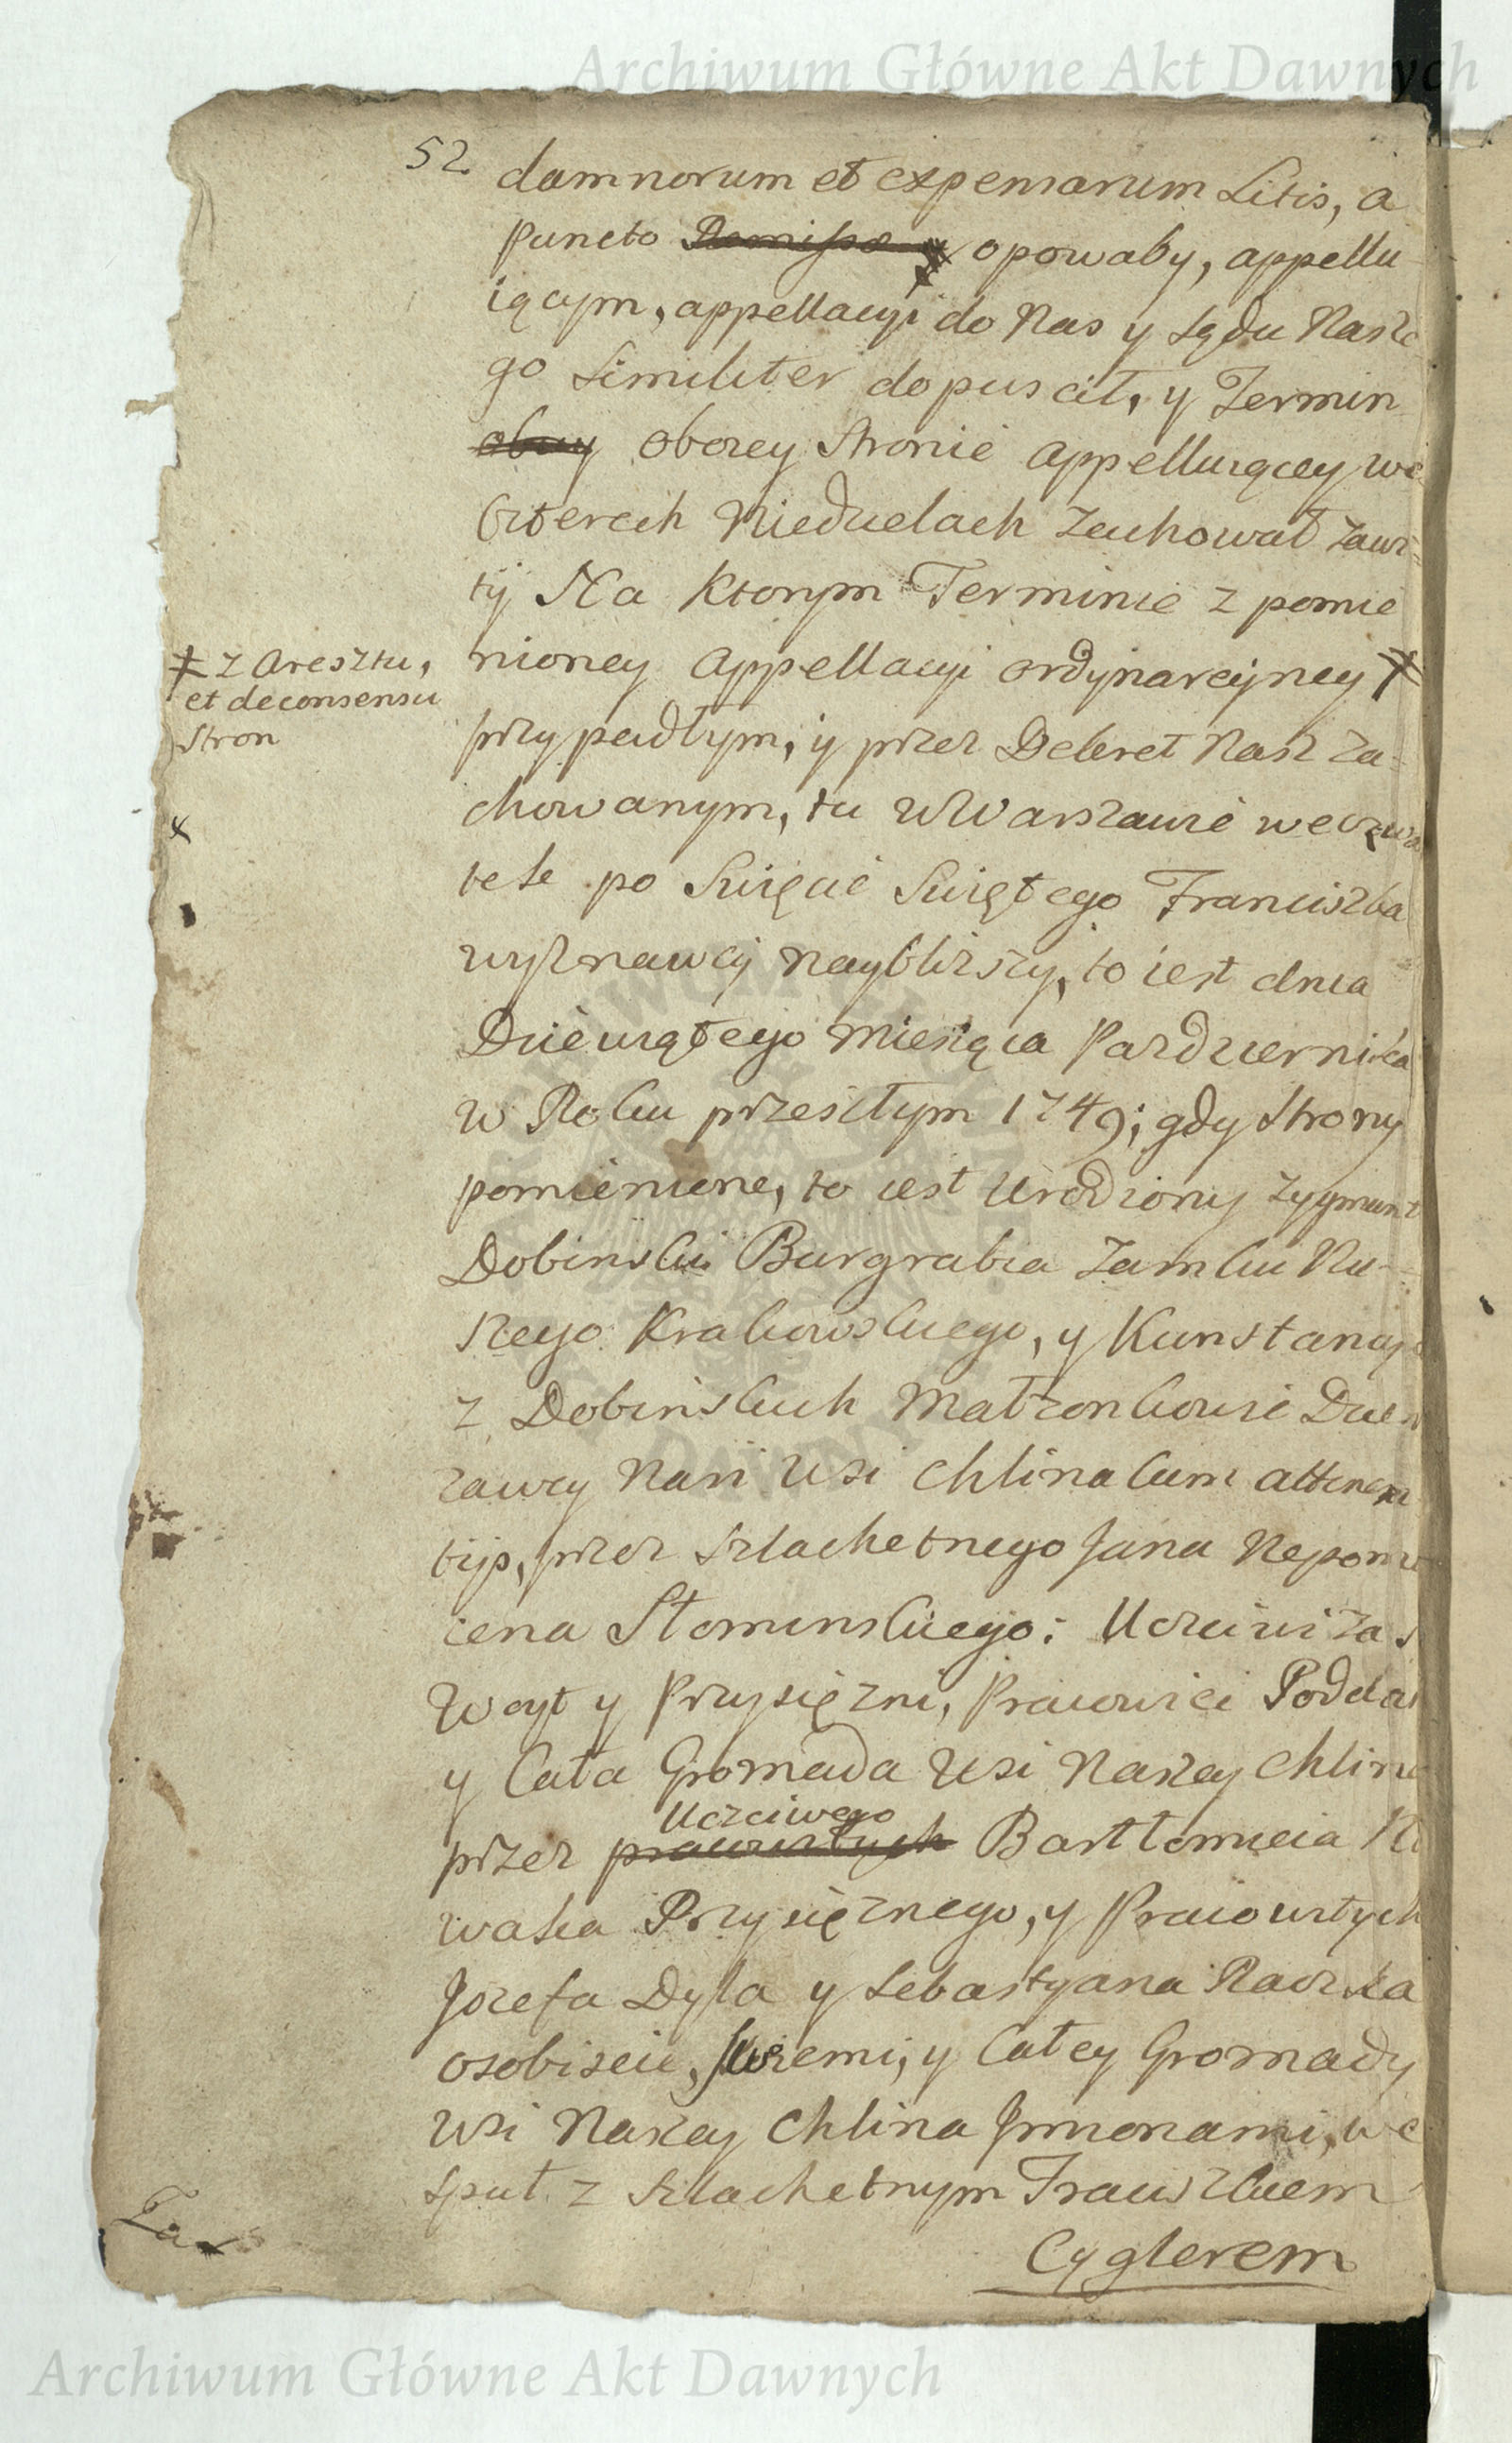 Archiwum Główne Akt Dawnych
52
damnorum et expensarum Litis, a
Puncto Remissae opowaby, appellu
iącym, appellacyi do Nas y Sądu Nasze
go Similiter dopuscił, y Termin
obuy oboiey Stronie appelluiącey we
Czterech Niedzielach zachował zawi
ty Na Ktorym Terminie z pomie
nioney appellacyi ordynaryiney
‡ z Aresztu,
et de consensu
Stron
przypadłym, y przez Dekret Nasz za
chowanym, tu w Warszawie we czwar
tek po Swięcie Swiętego Franciszka
wyznawcy naybliższy, to iest dnia
Dziewiątego Miesiąca Pazdziernika
w Roku przeszłym 1749; gdy Strony
pomienione, to iest Urodzony Zygmunt
Dobinski Burgrabia Zamku Na
szego Krakowskiego, y Kunstancya
z Dobinskich Małżonkowie Dzier
zawcy Nasi Wsi Chlina cum attinen
tijs, przez Szlachetnego Jana Nepomu
cena Słominskiego: Uczciwi zaś
Woyt y Przysiężni, Pracowici Poddani
y Cała Gromada Wsi Naszey Chlina
Uczciwego
przez pracowitych Bartłomieia No
waka Przysiężnego, y Pracowitych
Jozefa Dyla y Sebastyana Raczka
osobiscie, Swiemi, y Całey Gromady
Wsi Naszey Chlina Jmionami, we
społ z Szlachetnym Franciszkiem
Cyglerem
Archiwum Główne Akt Dawnych